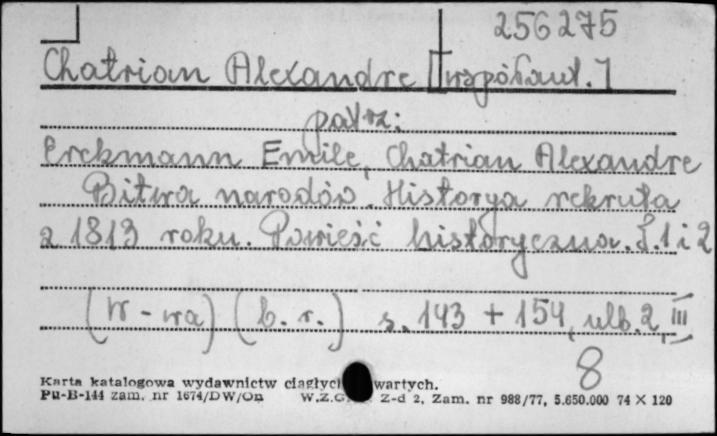 256275
Chatrian Alexandre [współaut.]
patrz:
Erckmann Emile, Chatrian Alexandre
Bitwa narodów. Historya rekruta
z 1813 roku. Powieść historyczna. T. 1 i 2
(W-wa) (b. r.) s. 143 + 154, nlb. 2, III
8
Karta katalogowa wydawnictw ciągłych wartych.
Pu-B-144 zam. nr 1674/DW/On W.Z.G. Z-d 2, Zam. nr 988/77, 5.650.000 74 X 120